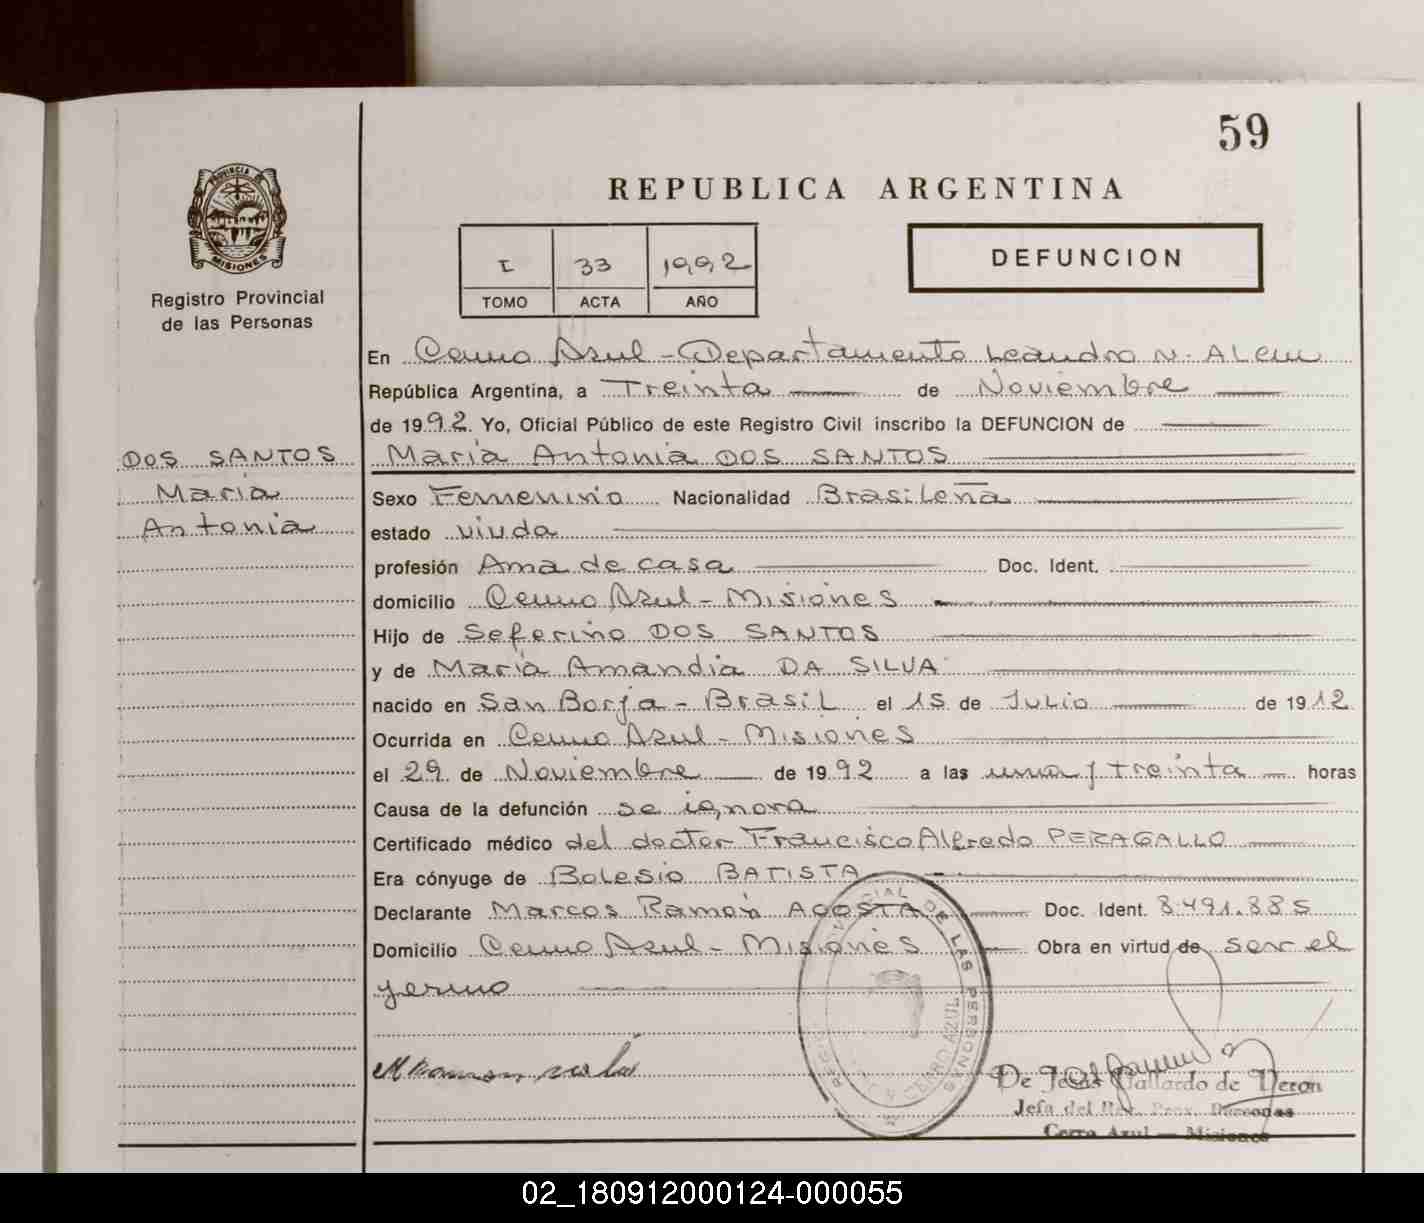 59
PROVINCIA DE
MISIONES
Registro Provincial
de las Personas
REPUBLICA ARGENTINA
I 33 1992
TOMO ACTA AÑO
DEFUNCION
En Cerro Azul - Departamento Leandro N. Alem
República Argentina, a Treinta de Noviembre
de 1992. Yo, Oficial Público de este Registro Civil inscribo la DEFUNCION de
DOS SANTOS
Maria
Antonia
Maria Antonia DOS SANTOS
Sexo Femenino Nacionalidad Brasileña
estado viuda
profesión Ama de casa Doc. Ident.
domicilio Cerro Azul - Misiones
Hijo de Seferino DOS SANTOS
y de Maria Amandia DA SILVA
nacido en San Borja - Brasil el 15 de Julio de 1912
Ocurrida en Cerro Azul - Misiones
el 29 de Noviembre de 1992 a las una y treinta horas
Causa de la defunción se ignora
Certificado médico del doctor Francisco Alfredo PERAGALLO
Era cónyuge de Bolesio BATISTA
Declarante Marcos Ramón ACOSTA Doc. Ident. 8.491.885
Domicilio Cerro Azul - Misiones Obra en virtud de ser el
yerno
DE LAS PERSONAS
CERRO AZUL
De Jesús Gallardo de Veron
Jefa del Reg. Prov. Personas
Cerro Azul — Misiones
02_180912000124-000055